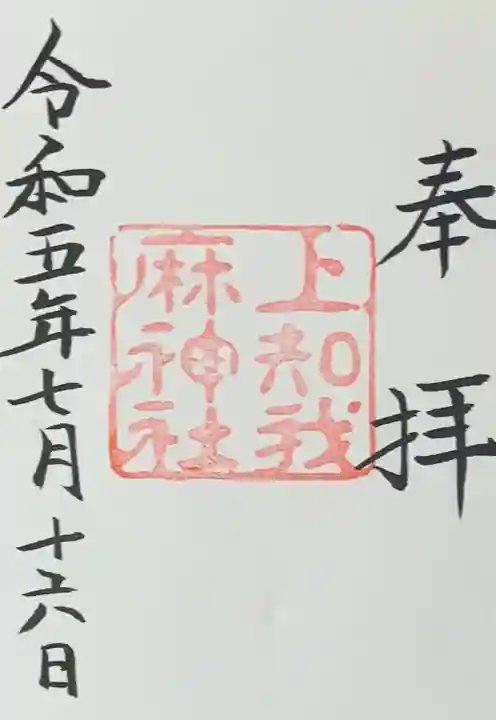 奉拝
上知我
麻神社
令和五年七月十六日